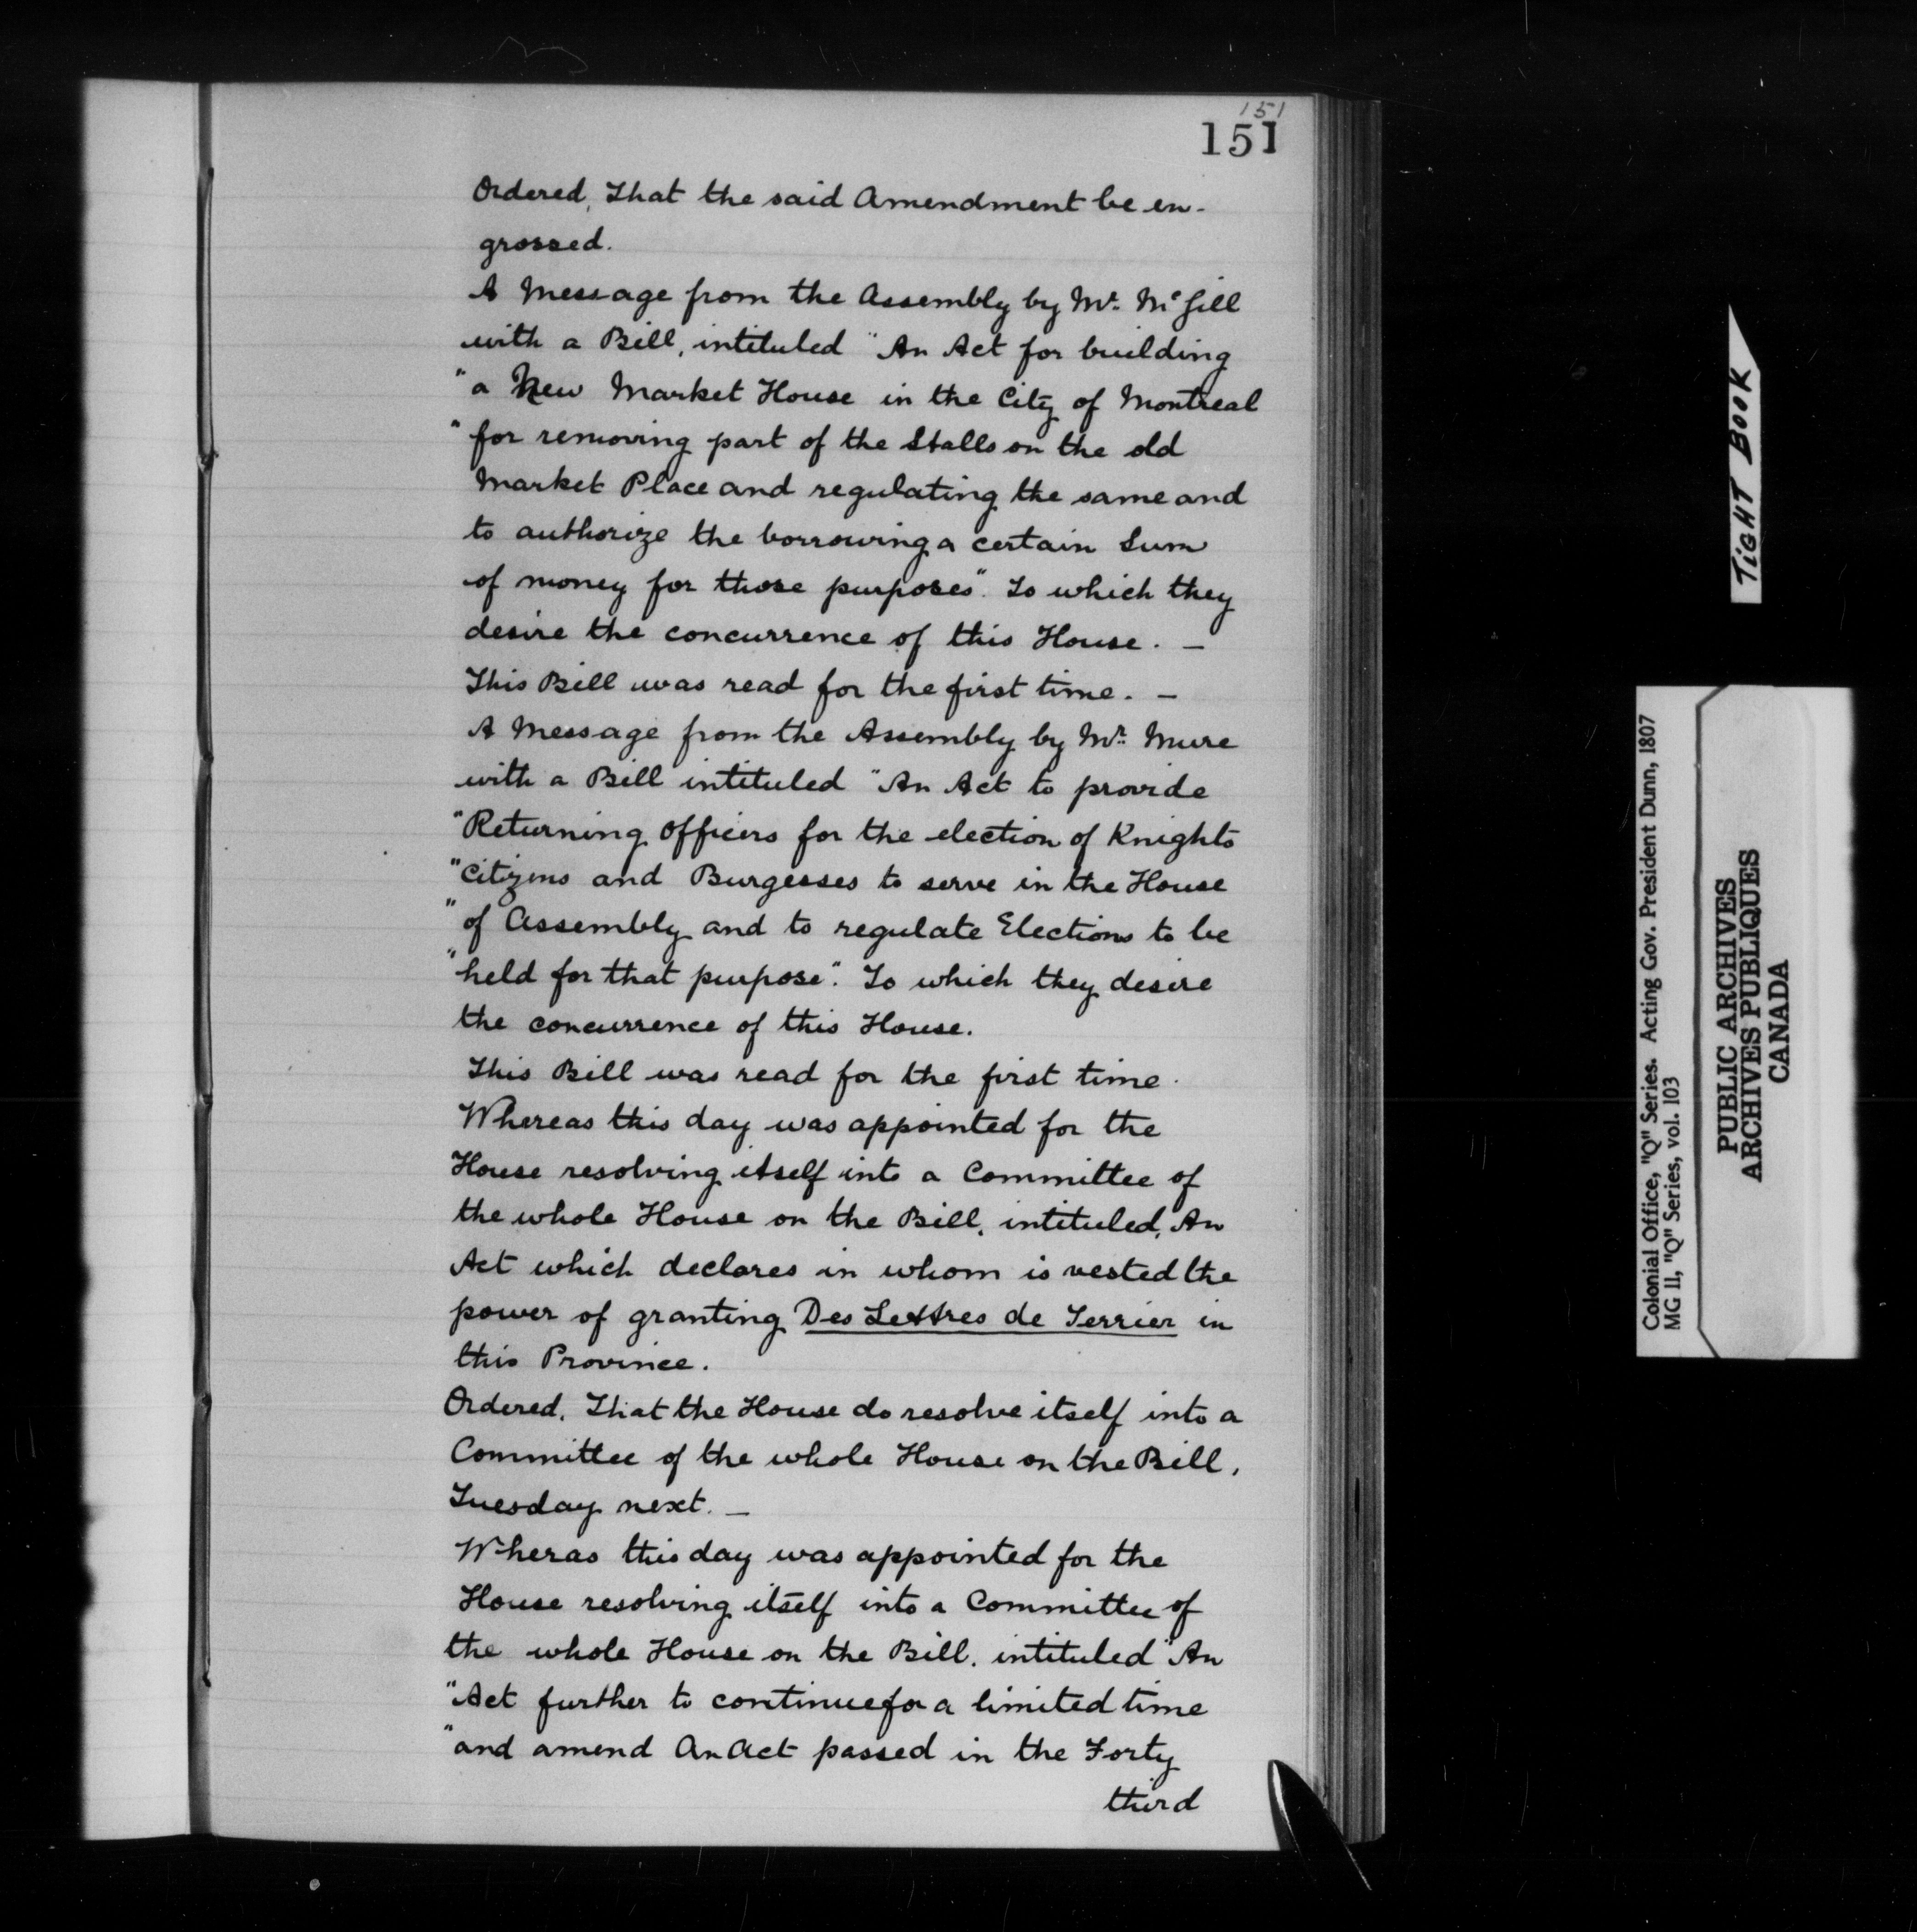 151
151
Ordered, That the said Amendment be en-
grossed.
A Message from the Assembly by Mr. McGill
with a Bill, intituled "An Act for building
"a New Market House in the City of Montreal
"for removing part of the Stalls on the old
Market Place and regulating the same and
to authorize the borrowing a certain Sum
of money for those purposes". To which they
desire the concurrence of this House. —
This Bill was read for the first time. —
A Message from the Assembly by Mr. Mure
with a Bill intituled "An Act to provide
"Returning Officers for the election of Knights
"Citizens and Burgesses to serve in the House
"of Assembly and to regulate Elections to be
"held for that purpose". To which they desire
the concurrence of this House.
This Bill was read for the first time.
Whereas this day was appointed for the
House resolving itself into a Committee of
the whole House on the Bill, intituled, An
Act which declares in whom is vested the
power of granting Des Lettres de Terrier in
this Province.
Ordered, That the House do resolve itself into a
Committee of the whole House on the Bill,
Tuesday next. —
Wheras this day was appointed for the
House resolving itself into a Committee of
the whole House on the Bill, intituled "An
"Act further to continue for a limited time
"and amend An Act passed in the Forty
third
TIGHT BOOK
Colonial Office, "Q" Series. Acting Gov. President Dunn, 1807
MG 11, "Q" Series, vol. 103
PUBLIC ARCHIVES
ARCHIVES PUBLIQUES
CANADA